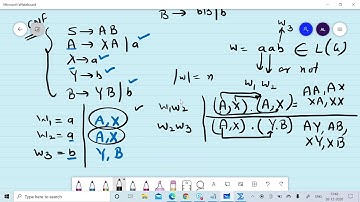 Microsoft Whiteboard
CNF
S → AB
A → XA | a ✓
X → a ✓
Y → b ✓
B → YB | b ✓
B → bB | b
w = aab ∈ L(G)
or not
|w| = n
w₃
w₁ w₂
w₁ = a | A, X
w₂ = a | A, X
w₃ = b | Y, B
w₁w₂ | (A, X) . (A, X) = AA, AX
XA, XX
w₂w₃ | (A, X) . (Y, B) AY, AB,
XY, XB